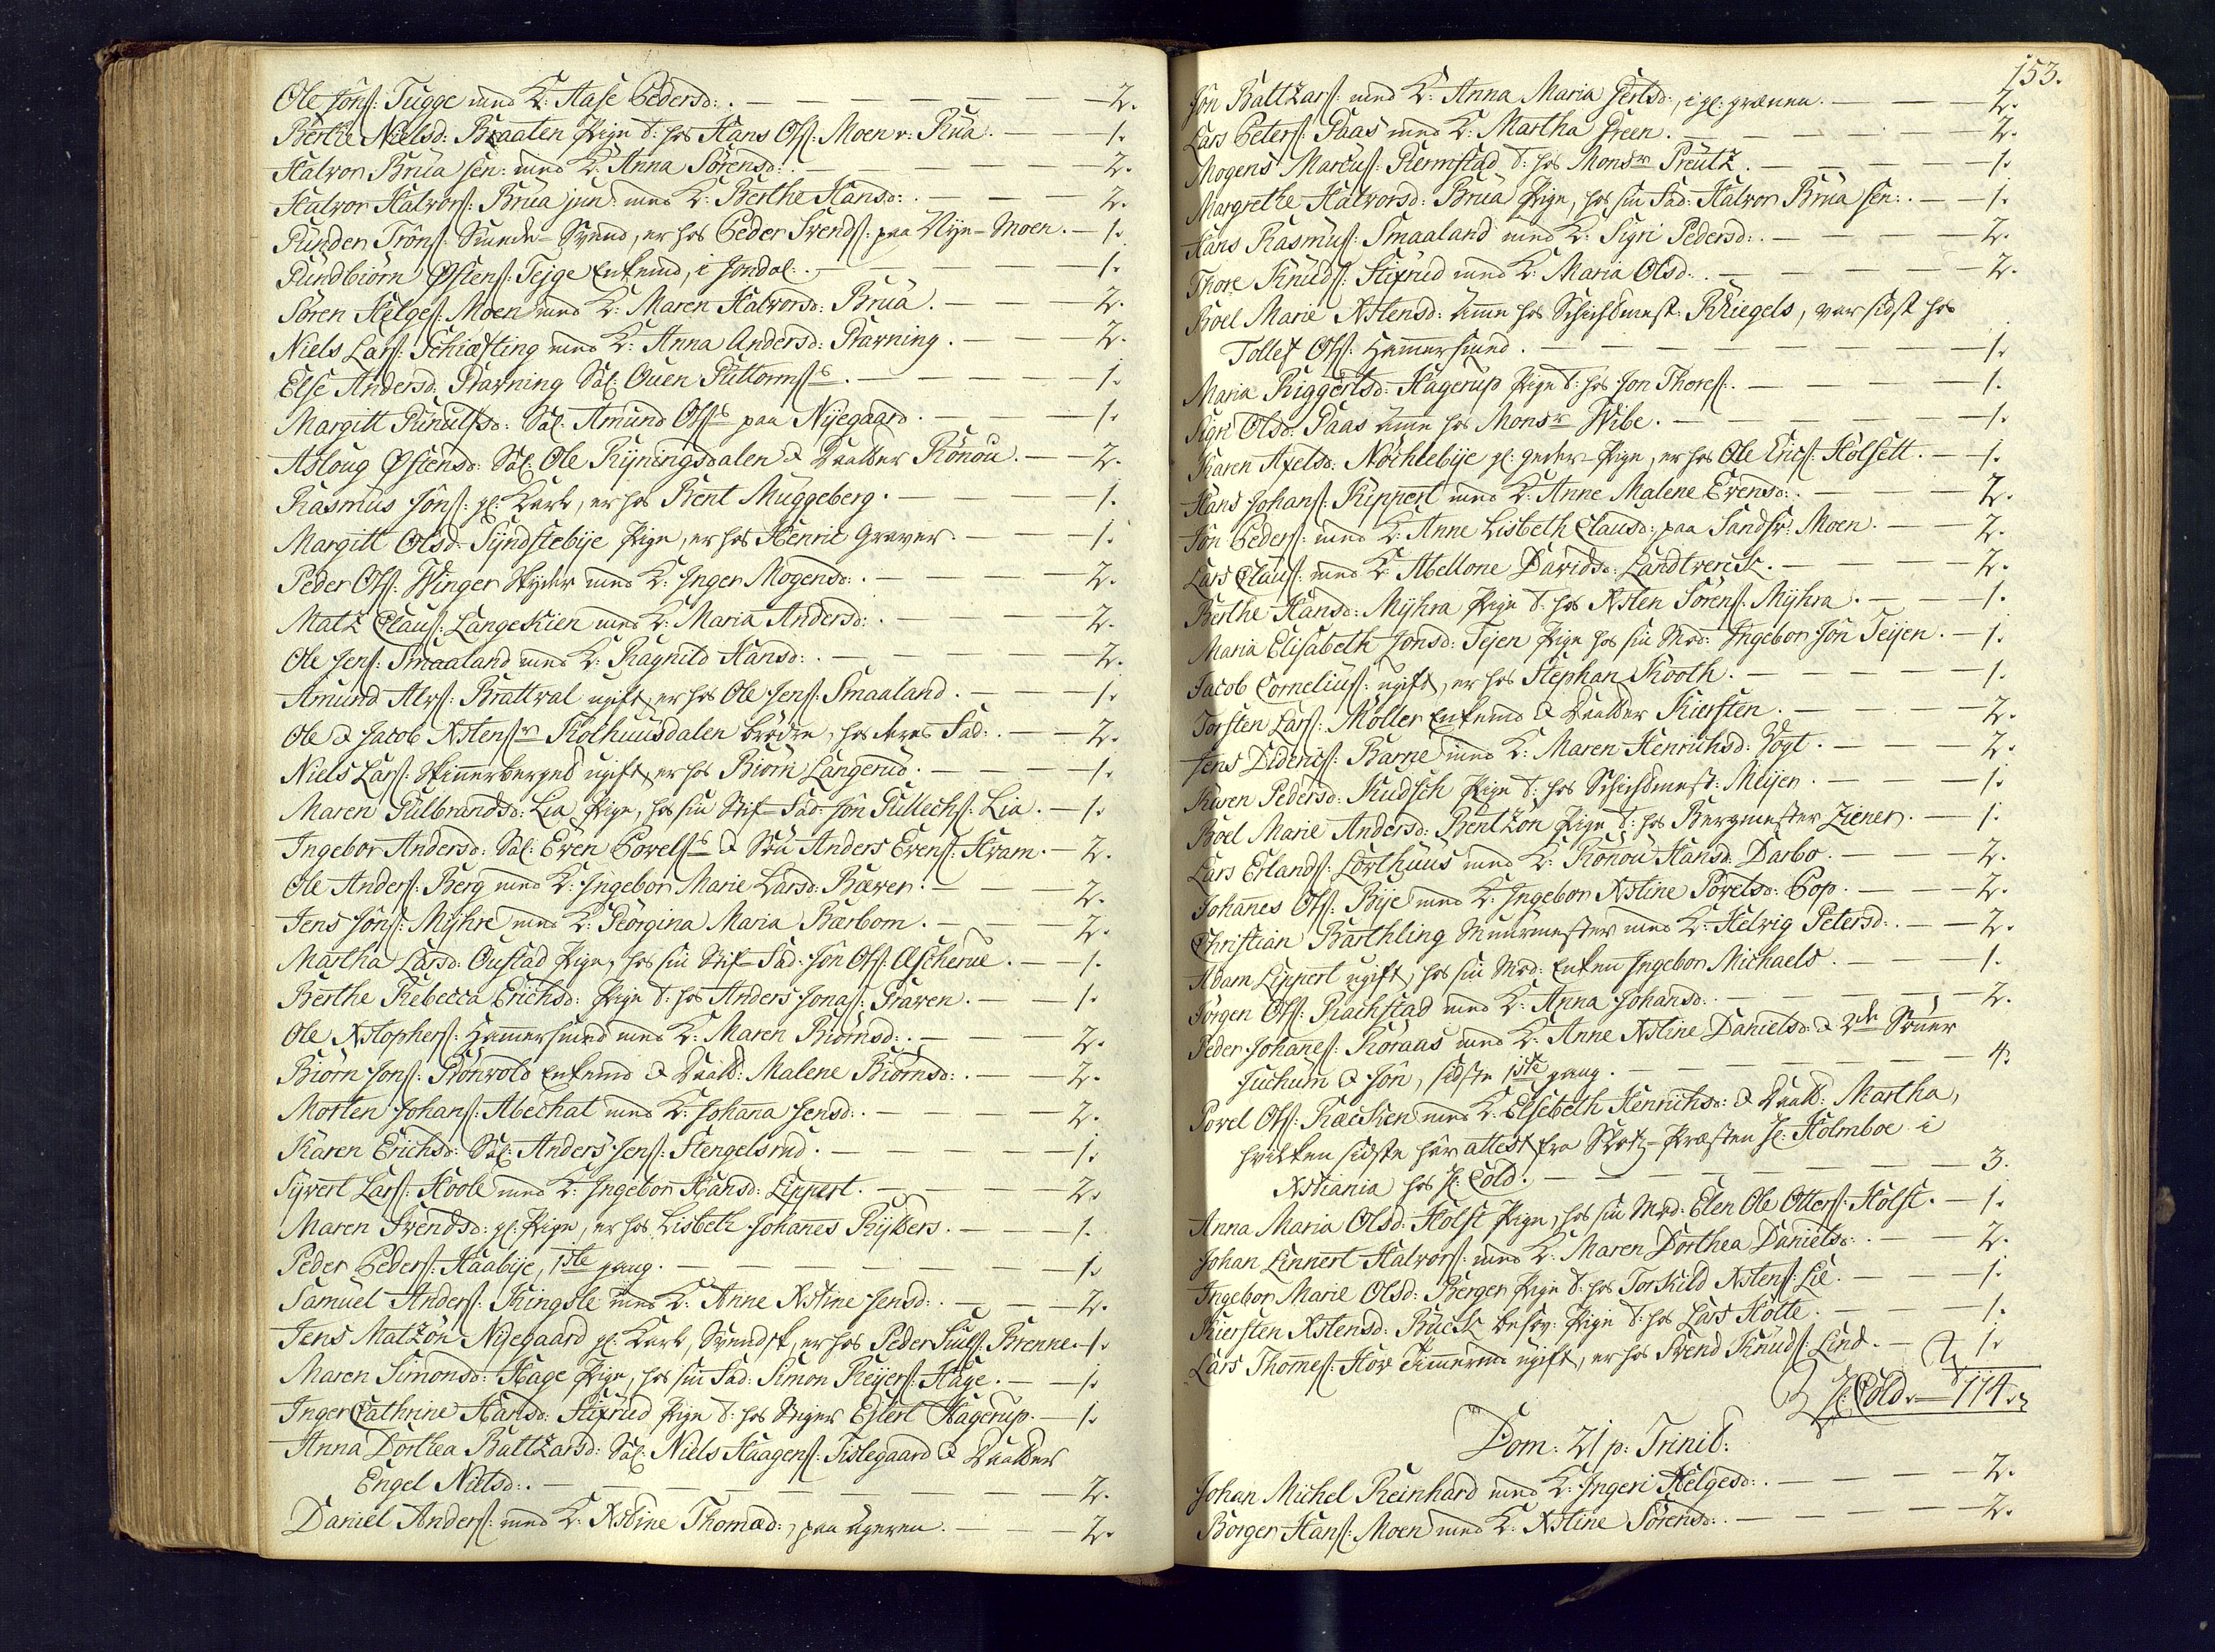 Ole Jöns: Tugge med K: Aase Peders: . — 2.
Berthe Nielsd: Braaten Pige t: hos Hans Ols: Moen v: Rua . — 1.
Halvor Brua sen: med K: Anna Sörensd: . — 2.
Halvor Halvors: Brua jun: med K: Berthe Hansd: . — 2.
Gunder Tröns: Smede-Svend, er hos Peder Svends: paa Nye-Moen . — 1.
Gundbiörn Östens: Tejge Enkemd, i Jondal: . — 1.
Sören Helges: Moen med K: Maren Halvorsd: Brua . — 2.
Niels Lars: Schiæfting med K: Anna Andersd: Grarning . — 2.
Else Andersd: Grarning Sal: Ouen Guttorms . — 1.
Margitt Gunulfsd: Sal: Amund Ols paa Nyegaard . — 1.
Asloug Östensd: Sal: Ole Ryningsdalen & Daatter Rönou . — 2.
Rasmus Jöns: gl: Karl, er hos Bent Muggeberg . — 1.
Margitt Olsd: Syndstebye Pige, er hos Henric Graver . — 1.
Peder Ols: Winger med K: Inger Mogensd: . — 2.
Matz Claus: Langekien med K: Maria Andersd: . — 2.
Ole Jens: Smaaland med K: Ragnild Hansd: . — 2.
Amund Alvs: Brattval ugift, er hos Ole Jens: Smaaland . — 1.
Ole & Jacob Xstens Kolhuusdalen brødre, hos deres Fad: . — 2.
Niels Lars: Skinnerberged ugift, er hos Biörn Langerud . — 1.
Maren Gulbrandsd: Lia Pige, hos sin Stif-Fad: Jön Gullechs: Lia . — 1.
Ingebor Andersd: Sal: Even Povels & Sön Anders Evens: Hvam . — 2.
Ole Anders: Berg med K: Ingebor Marie Larsd: Bæver . — 2.
Jens Jöns: Myhre med K: Georgina Maria Bærbom . — 2.
Martha Larsd: Oustad Pige, hos sin Stif-Fad: Jön Ols: Ascherue . — 1.
Berthe Rebecca Erichsd: Pige t: hos Anders Jonas: Graven . — 1.
Ole Xstophers: Hammersmed med K: Maren Biörnsd: . — 2.
Biörn Jons: Grönvold Enkemd & Daatt: Malene Biörnsd: . — 2.
Morten Johans: Abechat med K: Johana Jensd: . — 2.
Karen Erichsd: Sal: Anders Jens: Stengelsrud . — 1.
Syvert Lars: Hoole med K: Ingebor Hansd: Lippert . — 2.
Maren Svendsd: gl: Pige, er hos Lisbeth Johanes Rytters . — 1.
Peder Peders: Haabye, 1ste gang . — 1.
Samuel Anders: Kingsle med K: Anne Xstine Jensd: . — 2.
Jens Matzön Nyegaard gl: Karl, Svendsk, er hos Peder Juuls: Brenne . 1.
Maren Simonsd: Hage Pige, hos sin Fad: Simon Reyers: Hage . — 1.
Inger Cathrine Hansd: Stixrud Pige t: hos Stiger Eylert Hagerup . — 1.
Anna Dorthea Baltzarsd: Sal: Niels Haagens: Fislegaard & Daatter
Engel Nielsd: . — 2.
Daniel Anders: med K: Xstine Thomæd: , paa Ageren . — 2.
153.
Jön Baltzars: med K: Anna Maria Jertsd: , i gl: gruuen . — 2.
Lars Peters: Paas med K: Martha Green . — 2.
Mogens Marcus: Germstad t: hos Monsr Preutz . — 1.
Margrethe Halvorsd: Brua Pige, hos sin Fad: Halvor Brua sen: . — 1.
Hans Rasmus: Smaaland med K: Sigri Pedersd: . — 2.
Thore Knuds: Stixrud med K: Maria Olsd: . — 2.
Boel Marie Xstensd: Amme hos Schichtmest: Rhiegels, var sidst hos
Tollef Ols: Hammersmed . — 1.
Maria Riggertsd: Hagerup Pige t: hos Jon Thores: . — 1.
Sigri Olsd: Paas Amme hos Monsr Wibe . — 1.
Karen Axelsd: Nöchlebye gl: Pige, er hos Ole Erics: Holsett . — 1.
Hans Johans: Kippert med K: Anne Malene Evensd: . — 2.
Jön Peders: med K: Anne Lisbeth Clausd: paa Sandsv: Moen . — 2.
Lars Claus: med K: Abellone Davidsd: Landtverck . — 2.
Berthe Hansd: Myhra Pige t: hos Xsten Sörens: Myhra . — 1.
Maria Elisabeth Jonsd: Tejen Pige hos sin Mod: Ingebor Jön Teijen . — 1.
Jacob Cornelius: ugift, er hos Stephan Kooth . — 1.
Torsten Lars: Möller Enkemd & Daatter Kiersten . — 2.
Jens Diderics: Barne med K: Maren Henrichsd: Vogt . — 2.
Karen Pedersd: Kudsch Pige t: hos Schichtmest: Meijer . — 1.
Boel Marie Andersd: Bentzön Pige t: hos Bergmester Ziener . — 1.
Lars Erlands: Lorthuus med K: Rönou Hansd: Darbo . — 2.
Johanes Ols: Bije med K: Ingebor Xstine Povelsd: Pop . — 2.
Christian Barthling Muurmester med K: Helvig Petersd: . — 2.
Adam Lippert ugift, hos sin Mod: Enken Ingebor Michaels . — 1.
Jörgen Ols: Rachstad med K: Anna Johansd: . — 2.
Peder Johanes: Koraas med K: Anne Xstine Danielsd: & 2de Sönner
Juchum & Jön, sidste 1ste gang . — 4.
Povel Ols: Kiæcken med K: Elsebeth Henrichsd: & Daatt: Martha,
hvilken sidste har attest fra Slots-Præsten Hr: Holmboe i
Xstiania hos Hr: Cold . — 3.
Anna Maria Olsd: Holst Pige, hos sin Mod: Elen Ole Otters: Holst . — 1.
Johan Linnert Halvors: med K: Maren Dorthea Danielsd: . — 2.
Ingebor Marie Olsd: Berger Pige t: hos Torkild Xstens: Lie . — 1.
Kiersten Xstensd: Buck besov: Pige t: hos Lars Holte . — 1.
Lars Thomes: How Tömmermd ugift, er hos Svend Knuds: Lind . — 1.
Hr: Cold . — 114.
Dom: 21 p: Trinit:
Johan Michel Reinhard med K: Ingeri Helgesd: . — 2.
Börger Hans: Moen med K: Xstine Sörensd: . — 2.